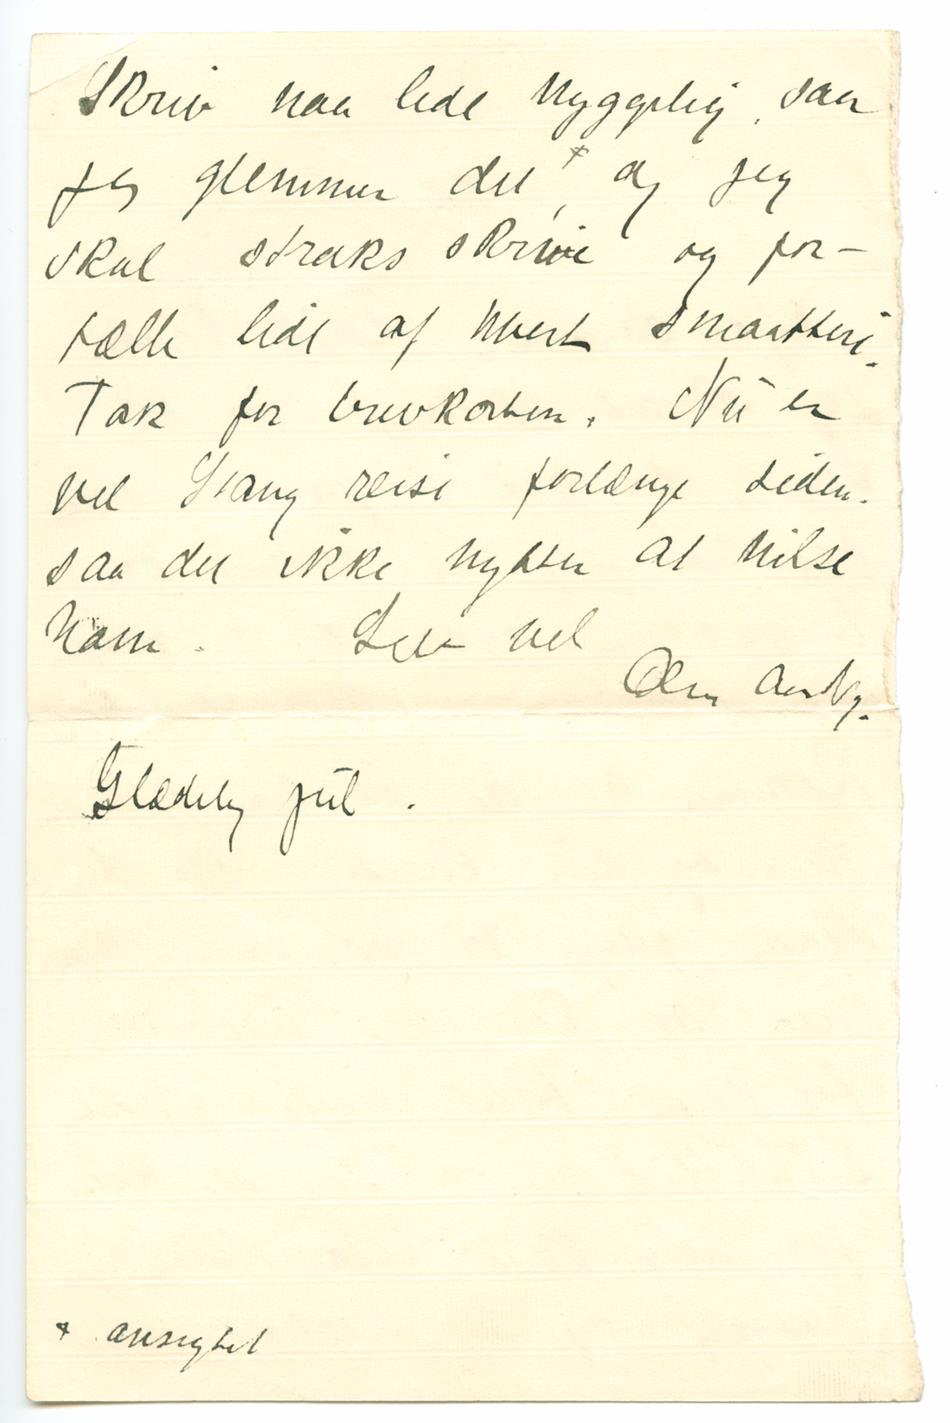 Skriv naa lidt hyggelig, saa
jeg glemmer det +, og jeg
skal straks skrive og for-
tælle lidt af hvert smaatteri.
Tak for brevkortene. Nu er
vel Stang reist forlænge siden.
saa det ikke nytter at hilse
ham. Lev vel
Glædelig jul.
+ ansigtet